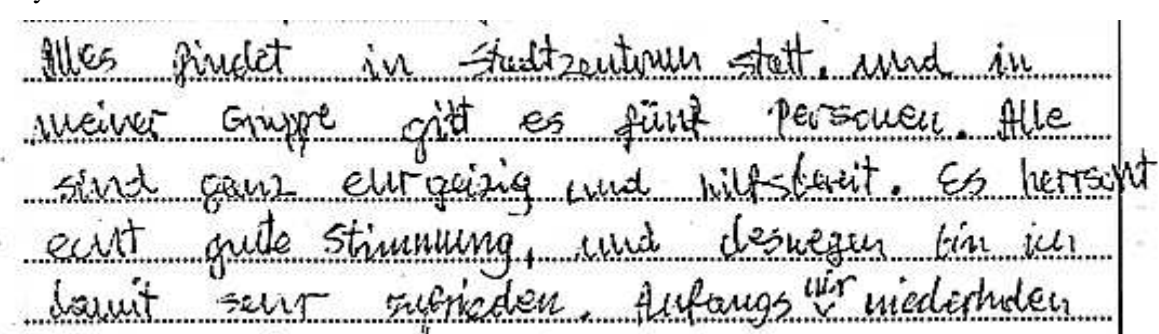 Alles findet in Stadtzentrum statt. und in
meiner Gruppe gibt es fünf Personen. Alle
sind ganz ehrgeizig und hilfsbereit. Es herrscht
echt gute Stimmung, und deswegen bin ich
damit sehr zufrieden. Anfangs wir wiederholen